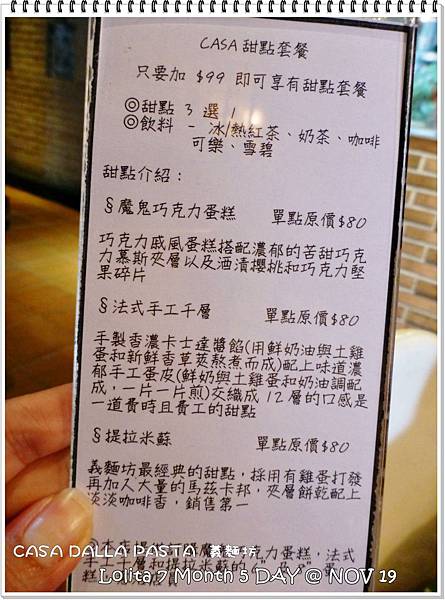 CASA 甜點套餐
只要加 $99 即可享有甜點套餐
◎甜點 3 選 1
◎飲料 - 冰/熱紅茶、奶茶、咖啡
可樂、雪碧
甜點介紹：
§魔鬼巧克力蛋糕 單點原價$80
巧克力戚風蛋糕搭配濃郁的苦甜巧克
力慕斯夾層以及酒漬櫻桃和巧克力堅
果碎片
§法式手工千層 單點原價$80
手製香濃卡士達醬餡(用鮮奶油與土雞
蛋和新鮮香草莢熬煮而成)配上味道濃
郁手工蛋皮(鮮奶與土雞蛋和奶油調配
成，一片一片煎)交織成 12 層的口感是
一道費時且費工的甜點
§提拉米蘇 單點原價$80
義麵坊最經典的甜點，採用有雞蛋打發
再加入大量的馬茲卡邦，夾層餅乾配上
淡淡咖啡香，銷售第一
◎本店提 魔 巧克力蛋糕，法式
手工千層和提拉米蘇的
CASA DALLA PASTA 義麵坊
Lolita 7 Month 5 DAY @ NOV 19